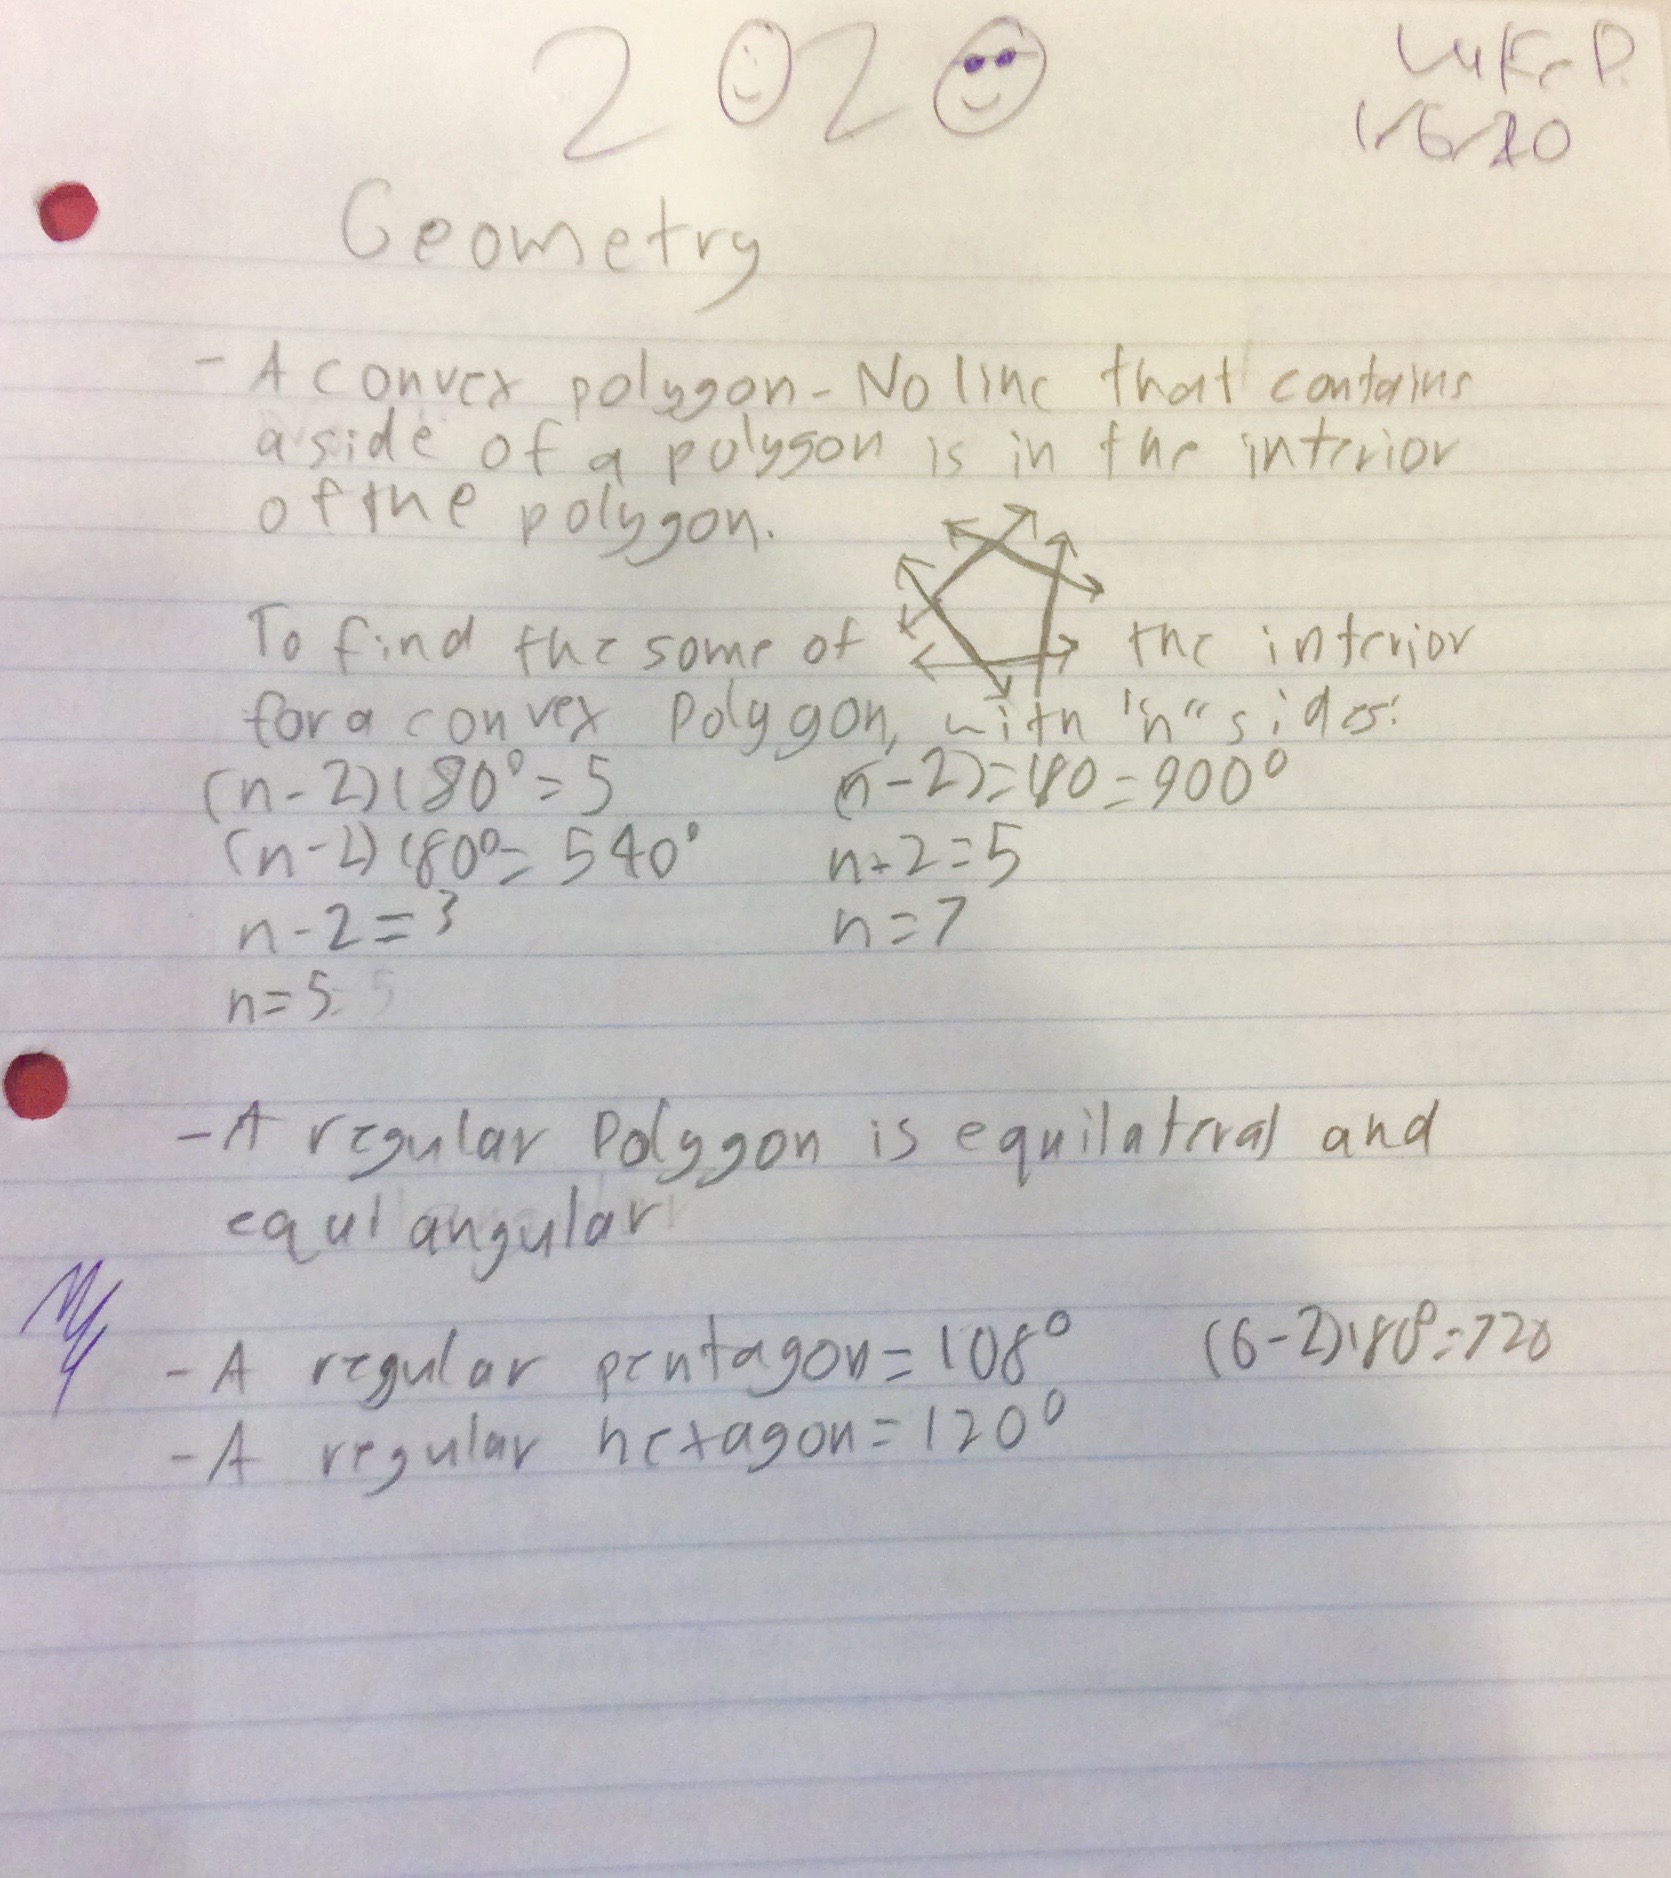 2020
Luke P.
1/6/20
Geometry
- A convex polygon - No line that contains
a side of a polygon is in the interior
of the polygon.
To find the some of the interior
for a convex Polygon, with "n" sides:
(n-2)180°=5 (n-2)=180=900°
(n-2)180°=540° n-2=5
n-2=3 n=7
n=5
- A regular Polygon is equilateral and
equiangular
- A regular pentagon=108° (6-2)180°=720
- A regular hexagon=120°